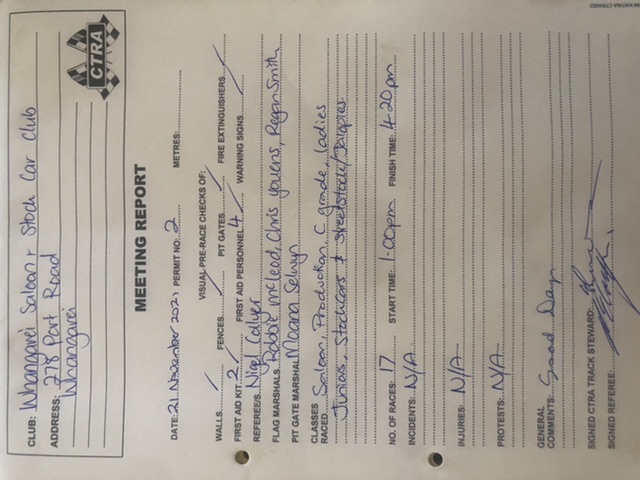 CTRA
CLUB: Whangarei Saloon & Stock Car Club
ADDRESS: 278 Port Road
Whangarei
MEETING REPORT
DATE: 21 November 2021 PERMIT NO: 2 METRES:
VISUAL PRE-RACE CHECKS OF:
WALLS ✓ FENCES ✓ PIT GATES ✓ FIRE EXTINGUISHERS ✓
FIRST AID KIT 2 FIRST AID PERSONNEL 4 WARNING SIGNS ✓
REFEREE/S: Nigel Collyer
FLAG MARSHALS: Robbie McLeod, Chris Youens, Regan Smith
PIT GATE MARSHAL Moana Selwyn
CLASSES
RACED: Saloon, Production, C grade, Ladies
Juniors, Stockcars & Streetstock/
NO. OF RACES: 17 START TIME: 1.00pm FINISH TIME: 4.20pm
INCIDENTS: N/A
INJURIES: N/A
PROTESTS: N/A
GENERAL
COMMENTS: Good Day
SIGNED CTRA TRACK STEWARD:
SIGNED REFEREE: